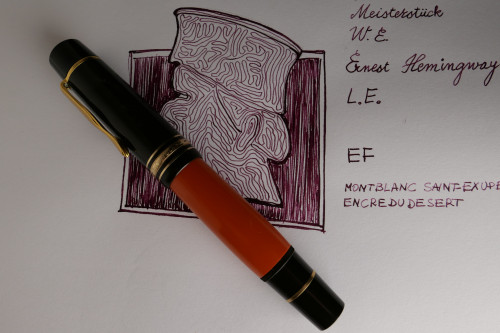 Meisterstück
W.E.
Ernest Hemingway
L.E.
EF
MONTBLANC SAINT-EXUPE
ENCRE DU DESERT